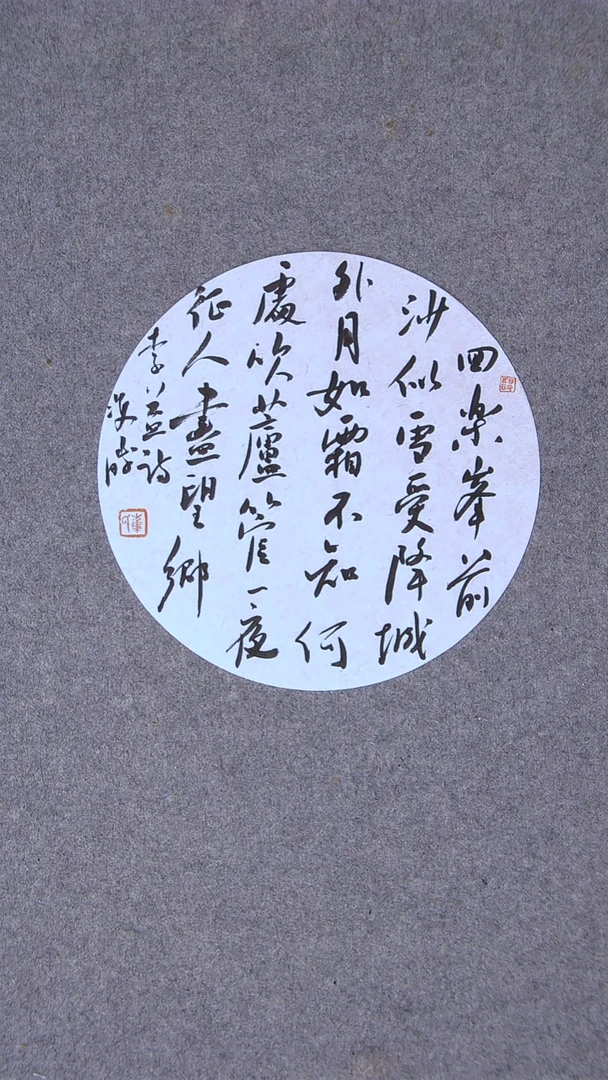 回楽峯前
沙似雪受降城
外月如霜不知何
處吹蘆管一夜
征人盡望鄉
李益詩